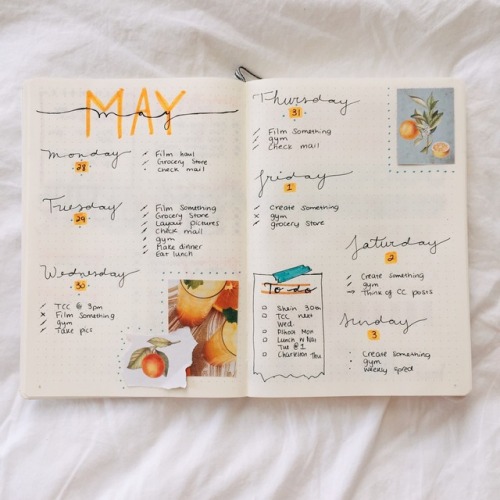 MAY
may
Monday
28
Film haul
Grocery Store
check mail
Tuesday
29
Film Something
Grocery Store
Layout pictures
Check mail
gym
Make dinner
Eat lunch
Wednesday
30
TCC @ 3pm
Film Something
gym
Take pics
Thursday
31
Film Something
gym
Check mail
Friday
1
Create Something
gym
grocery Store
To do
30th
TCC next
Wed
Mon
Lunch W
Tue @ 1
Thu
Saturday
2
Create Something
gym
Think of CC posts
Sunday
3
Create Something
gym
Weekly Spread